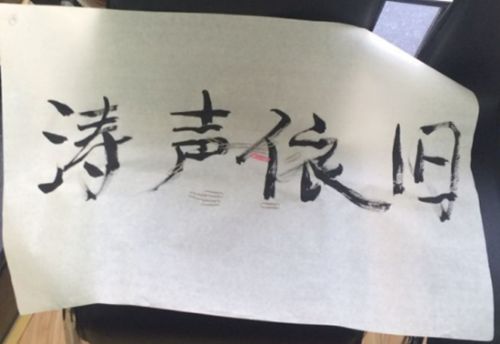 涛声依旧